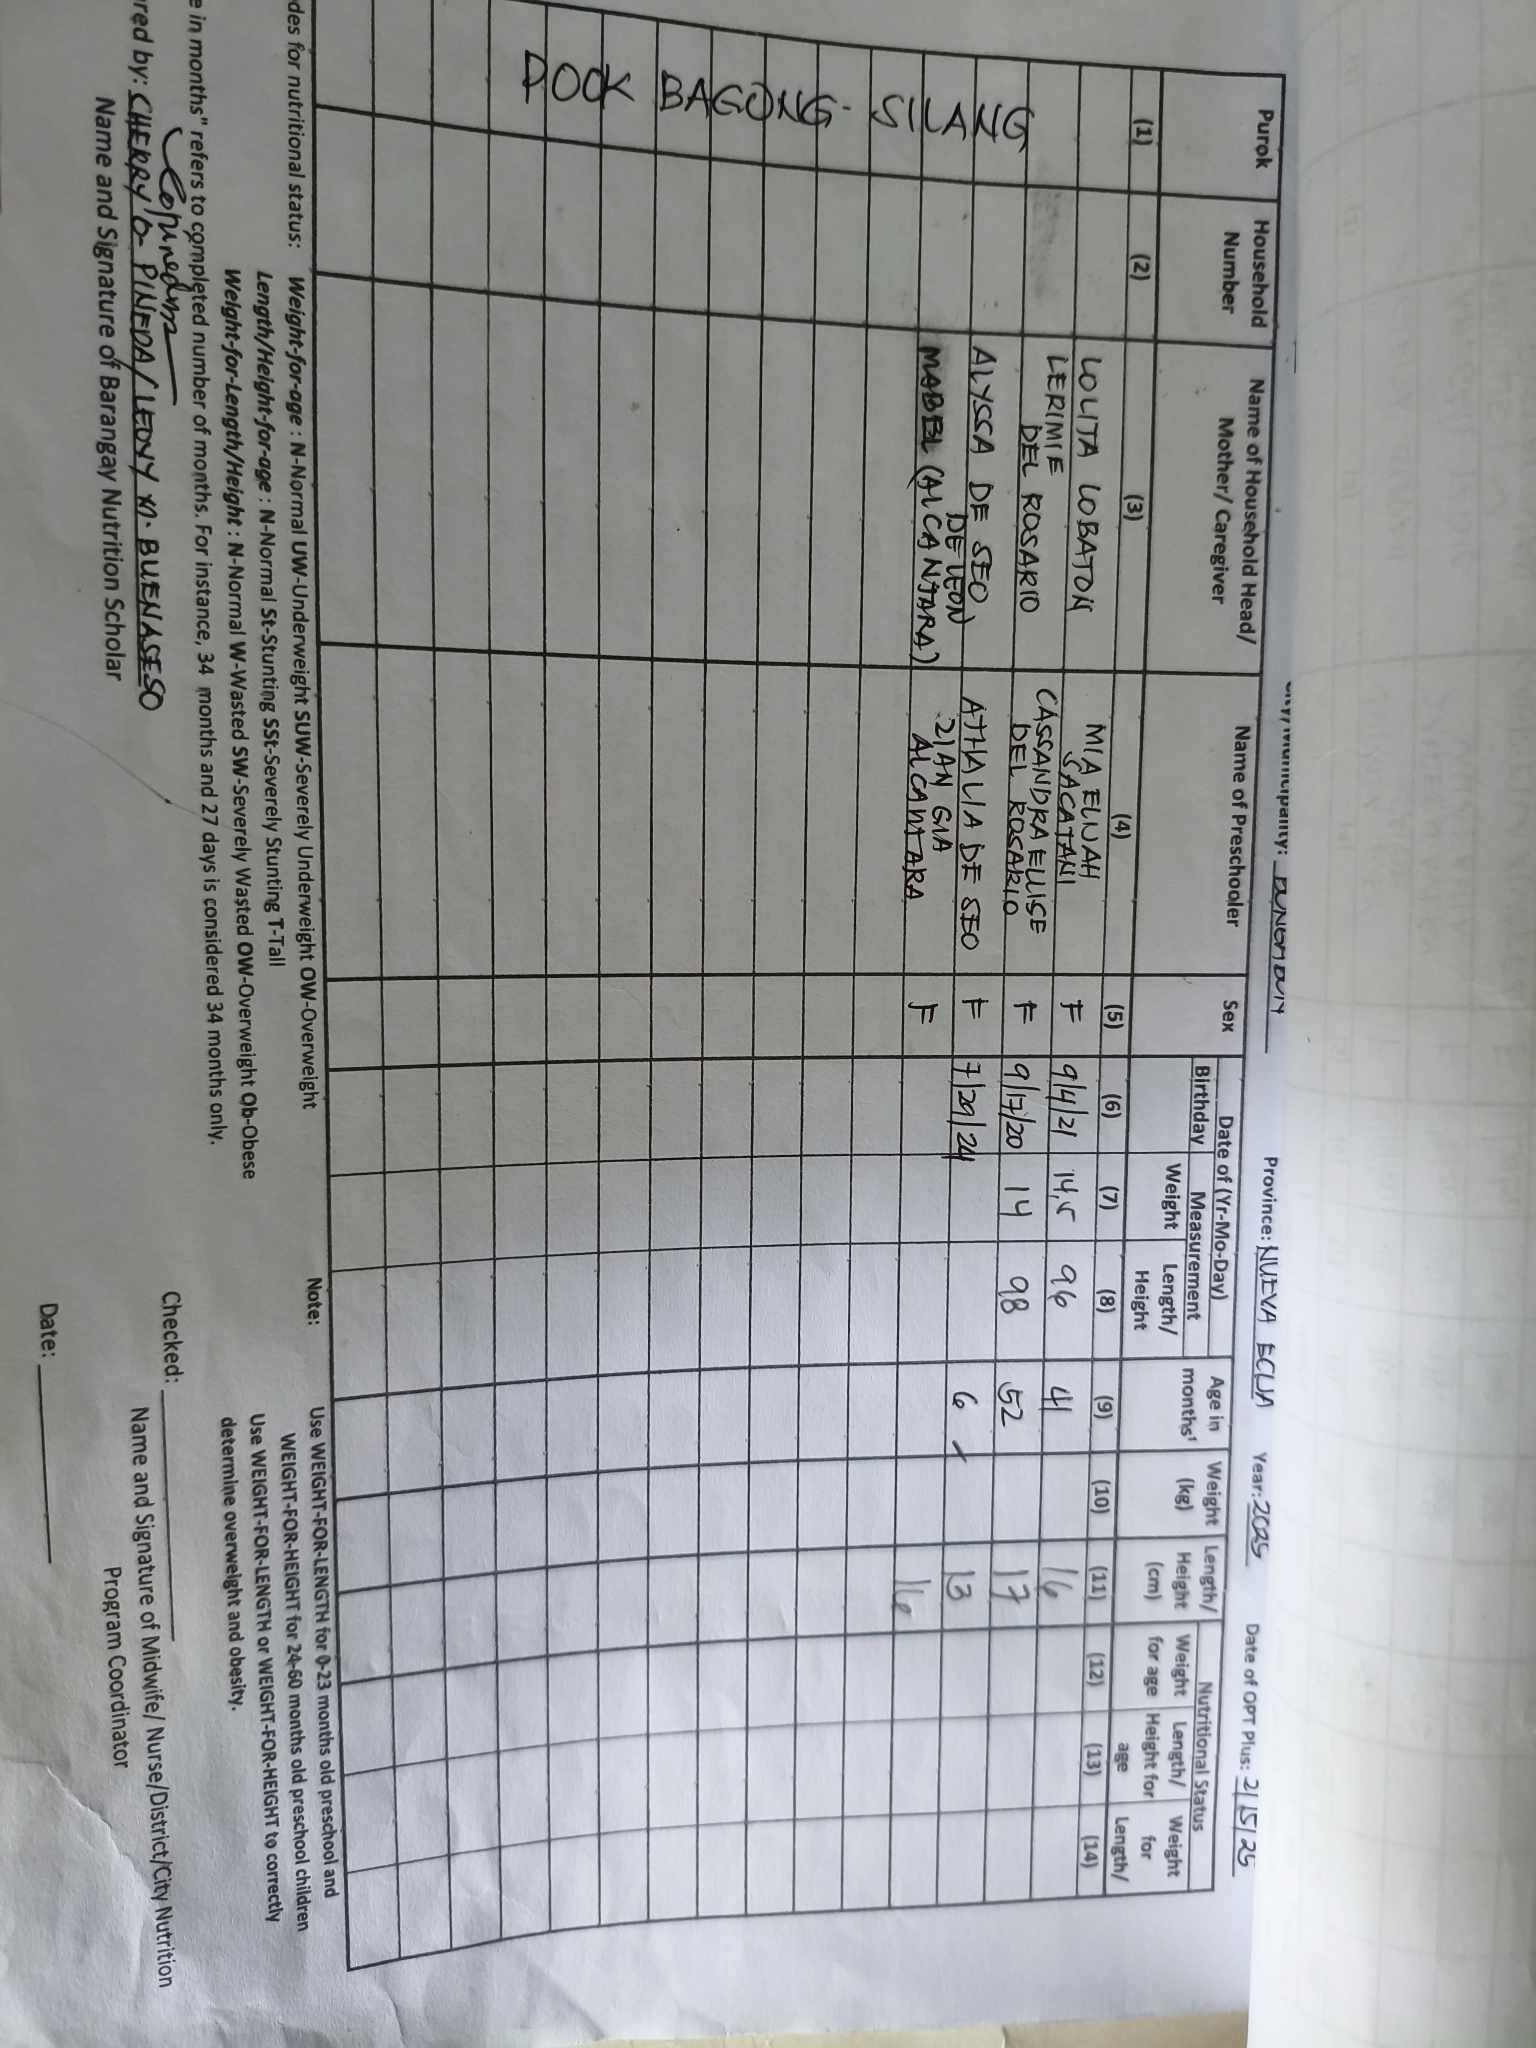 City/Municipality: BUNGABON Province: NUEVA ECIJA Year: 2025 Date of OPT Plus: 2/15/25
Purok Household Number Name of Household Head/ Mother/ Caregiver Name of Preschooler Sex Date of (Yr-Mo-Day) Age in months¹ Weight (kg) Length/ Height (cm) Nutritional Status
Birthday Measurement Weight for age Length/ Height for age Weight for Length/
Weight Length/ Height
(1) (2) (3) (4) (5) (6) (7) (8) (9) (10) (11) (12) (13) (14)
POOK BAGONG-SILANG
LOLITA LOBATON MIA ELIJAH SACATANI F 9/4/21 14,5 96 41 16
LERIMIE DEL ROSARIO CASSANDRA ELLISE DEL ROSARIO F 9/17/20 14 98 52 17
ALYSSA DE SEO, ATHALIA DE SEO F 7/29/24 6 13
DE LEON
MABEL (ALCANTARA) ZIAN GIA ALCANTARA F 16
des for nutritional status: Weight-for-age : N-Normal UW-Underweight SUW-Severely Underweight OW-Overweight
Length/Height-for-age : N-Normal St-Stunting SSt-Severely Stunting T-Tall
Weight-for-Length/Height : N-Normal W-Wasted SW-Severely Wasted OW-Overweight Ob-Obese
e in months" refers to completed number of months. For instance, 34 months and 27 days is considered 34 months only.
Note: Use WEIGHT-FOR-LENGTH for 0-23 months old preschool and
WEIGHT-FOR-HEIGHT for 24-60 months old preschool children
Use WEIGHT-FOR-LENGTH or WEIGHT-FOR-HEIGHT to correctly
determine overweight and obesity.
red by: CHERRY D. PINEDA/LEOVY M. BUENASESO
Name and Signature of Barangay Nutrition Scholar
Checked:
Name and Signature of Midwife/ Nurse/District/City Nutrition
Program Coordinator
Date: